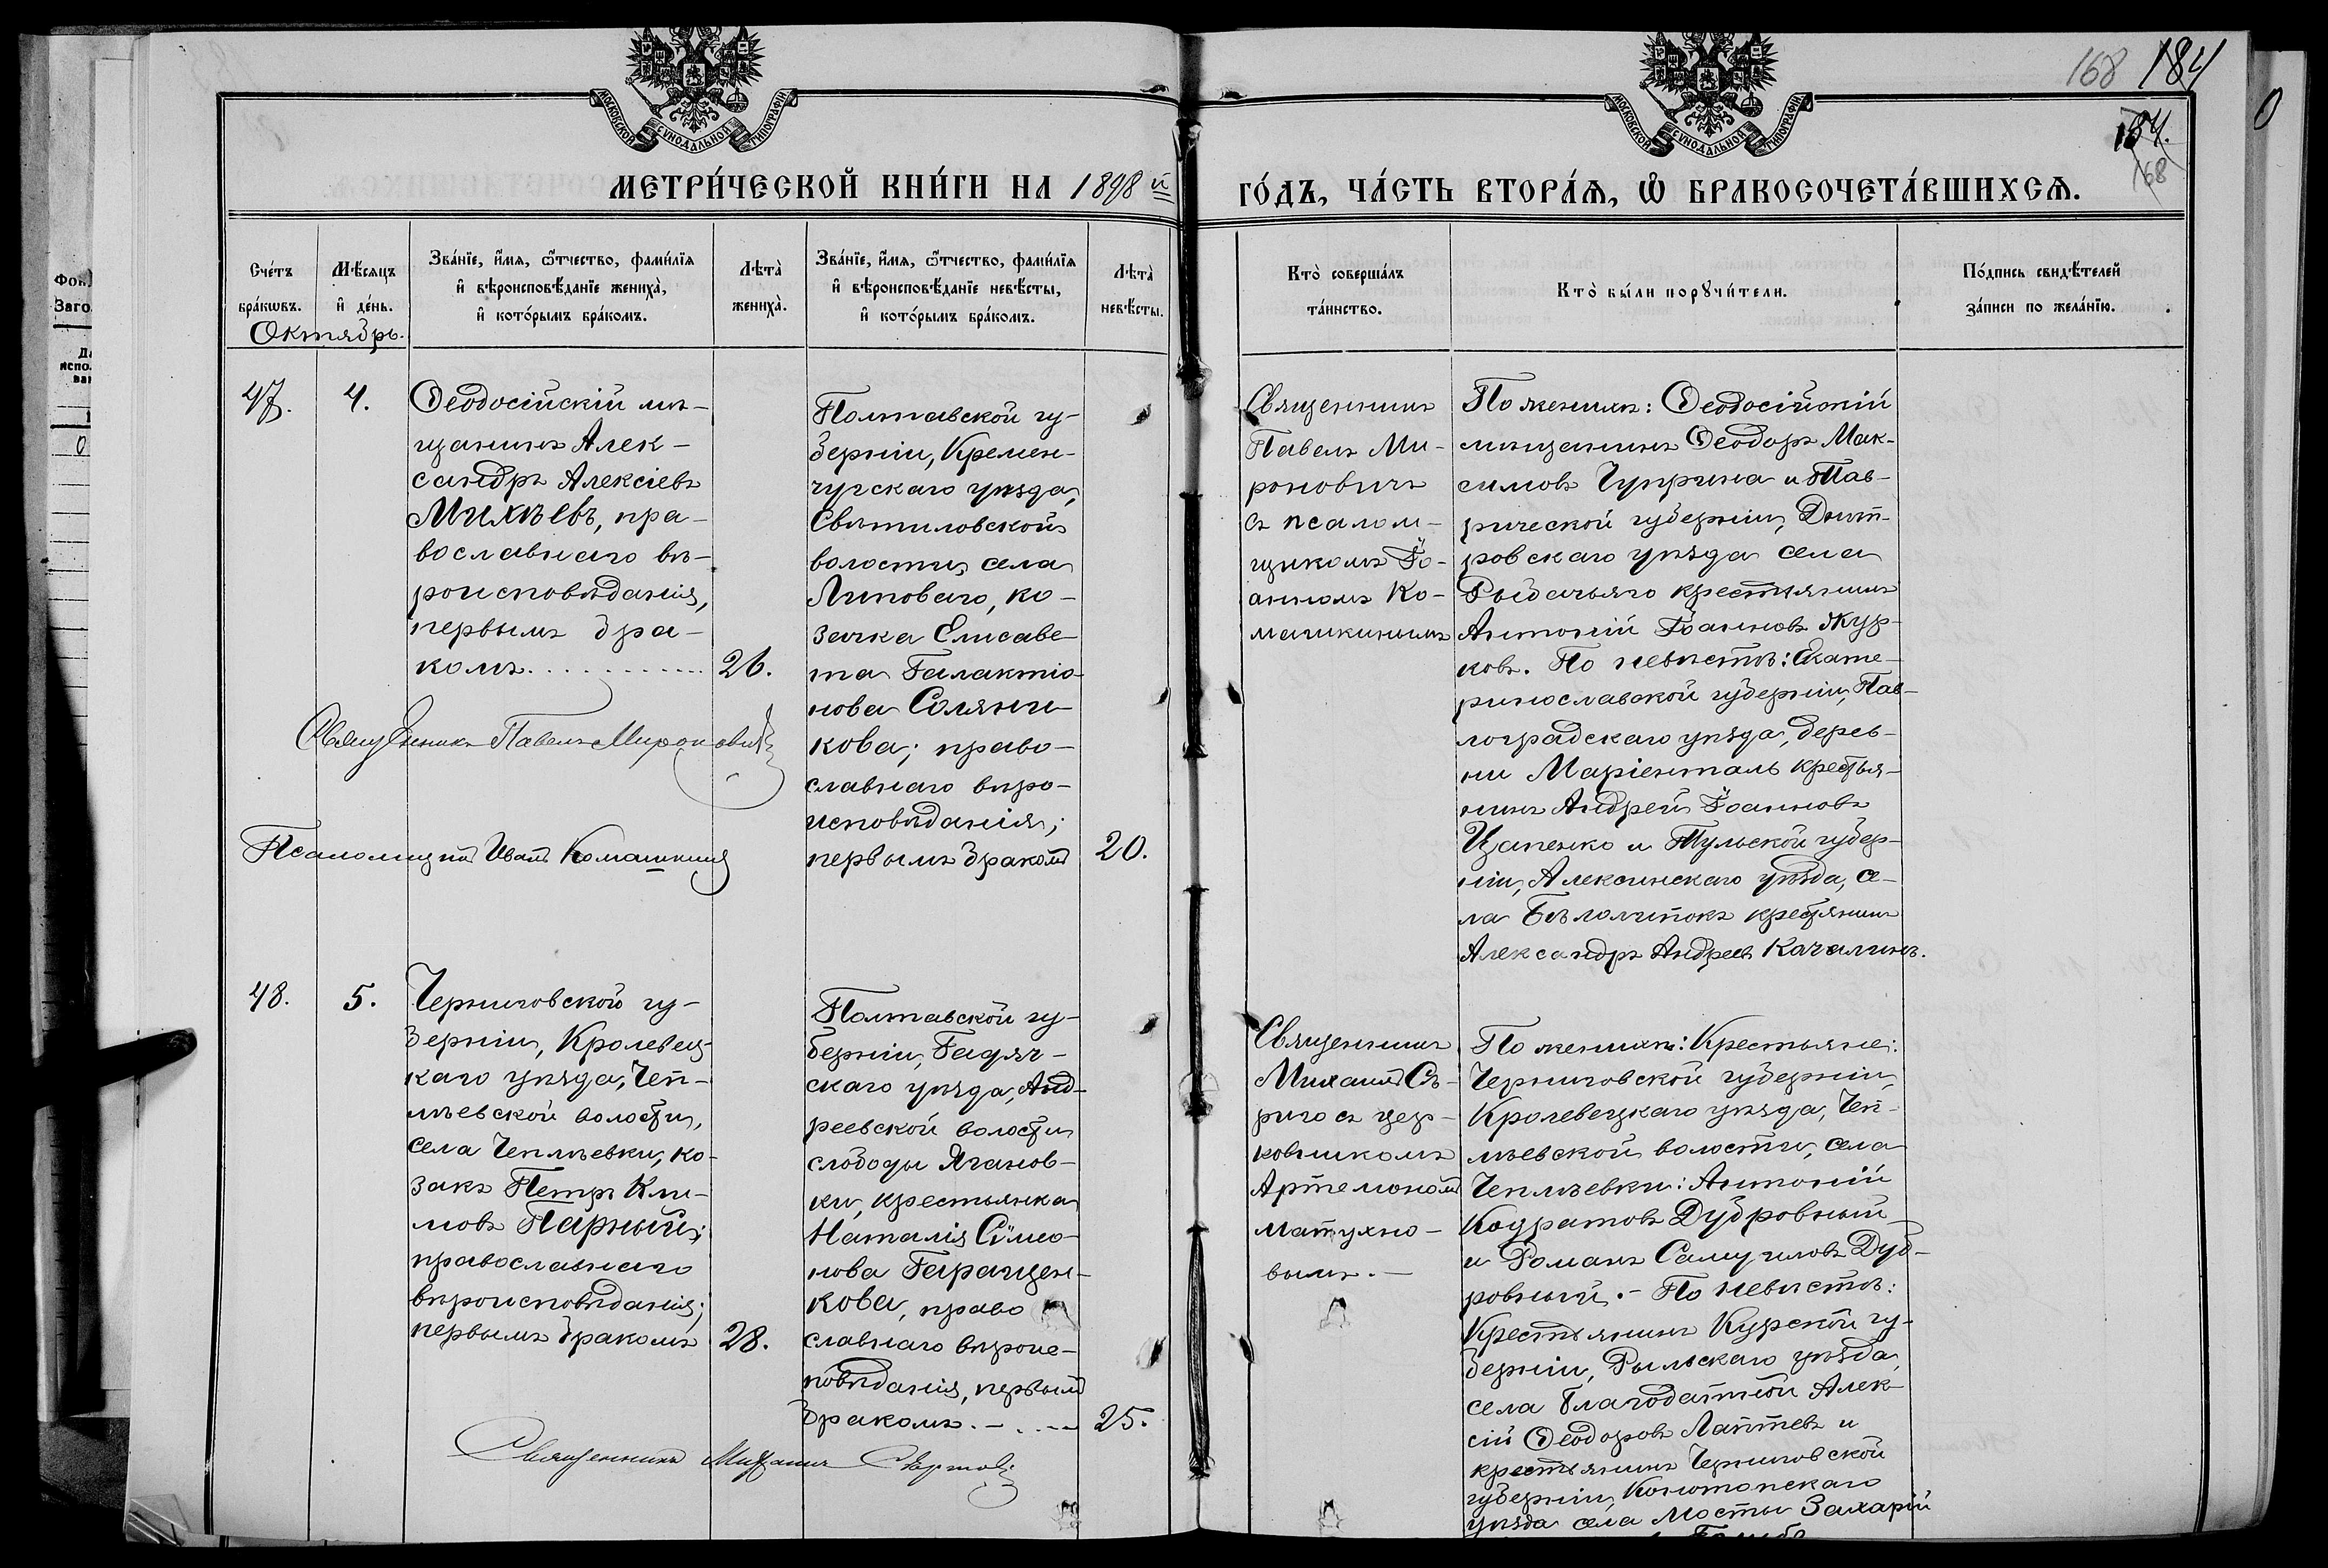 168 184
184.
168
0
МОСКОВСКОЙ СѴНОДАЛЬНОЙ ТИПОГРАФІИ
МОСКОВСКОЙ СѴНОДАЛЬНОЙ ТИПОГРАФІИ
МЕТРИ́ЧЕСКОЙ КНИ́ГИ НА 1898 й
ГО́ДЪ, ЧА́СТЬ ВТОРА́Ѧ, Ѽ БРАКОСОЧЕТА́ВШИХСѦ.
Сче́тъ
бра́кѡвъ.
Мѣ́сяцъ
и҆ де́нь.
Зва́нїе, и҆́мѧ, ѻ҆́тчество, фами́лїѧ
и҆ вѣроисповѣ́данїе жениха̀,
и҆ кото́рымъ бра́комъ.
Лѣта̀
жениха̀.
Зва́нїе, и҆́мѧ, ѻ҆́тчество, фами́лїѧ
и҆ вѣроисповѣ́данїе невѣ́сты,
и҆ кото́рымъ бра́комъ.
Лѣта̀
невѣ́сты.
Кто̀ соверша́лъ
та́инство.
Кто̀ бы́ли порꙋчи́тели.
По́дпись свидѣ́телей
за́писи по жела́нїю.
Октябрь.
47.
4.
Ѳеодосійскій мѣ-
щанинъ Алек-
сандръ Алексіевъ
Михѣевъ, пра-
вославнаго вѣ-
роисповѣданія,
первымъ бра-
комъ
26.
Полтавской гу-
берніи, Кремен-
чугскаго уѣзда,
Святиловской
волости, села
Липоваго, ко-
зачка Елисаве-
та Галактіо-
нова Соляни-
кова; право-
славнаго вѣро-
исповѣданія;
первымъ бракомъ
20.
Священникъ
Павелъ Ми-
роновичъ
съ псалом-
щикомъ Іо-
анномъ Ко-
машкинымъ
По женихѣ: Ѳеодосійскій
мѣщанинъ Ѳеодоръ Мак-
симовъ Чуприна и Тав-
рической губерніи, Днѣп-
ровскаго уѣзда села
Рыбачьяго крестьянинъ
Антоній Іоанновъ Жур-
ковъ. По невѣстѣ: Екате-
ринославской губерніи, Пав-
лоградскаго уѣзда, дерев-
ни Маріенталь крестья-
нинъ Андрей Іоанновъ
Цапенко и Тульской губер-
ніи, Алексинскаго уѣзда, се-
ла Бѣлолипокъ крестьянинъ
Александръ Андреевъ Качалинъ.
Священникъ Павелъ Мироновичъ
Псаломщикъ Иванъ Комашкинъ
48.
5.
Черниговской гу-
берніи, Кролевец-
каго уѣзда, Чеп-
лѣевской волости,
села Чеплѣевки, ко-
закъ Петръ Кли-
мовъ Парный;
православнаго
вѣроисповѣданія;
первымъ бракомъ
28.
Полтавской гу-
берніи, Гадяч-
скаго уѣзда, Анд-
реевской волости
слободы Ягановъ-
ки, крестьянка
Наталія Сімео-
нова Геращен-
кова, право
славнаго вѣроис-
повѣданія, первымъ
бракомъ.
25.
Священникъ
Михаилъ Сѣ-
риго съ цер-
ковникомъ
Артемономъ
Матухно-
вымъ.
По женихѣ: Крестьяне:
Черниговской губерніи,
Кролевецкаго уѣзда, Чеп-
лѣевской волости, села
Чеплѣевки: Антоній
Кодратовъ Дубровный
и Романъ Самуиловъ Дуб-
ровный. - По невѣстѣ:
Крестьянинъ Курской гу-
берніи, Рыльскаго уѣзда,
села Благодатной Алек-
сій Ѳеодоровъ Лаптевъ и
крестьянинъ Черниговской
губерніи, Конотопскаго
уѣзда села Мосты Захарій
Священникъ Михаилъ